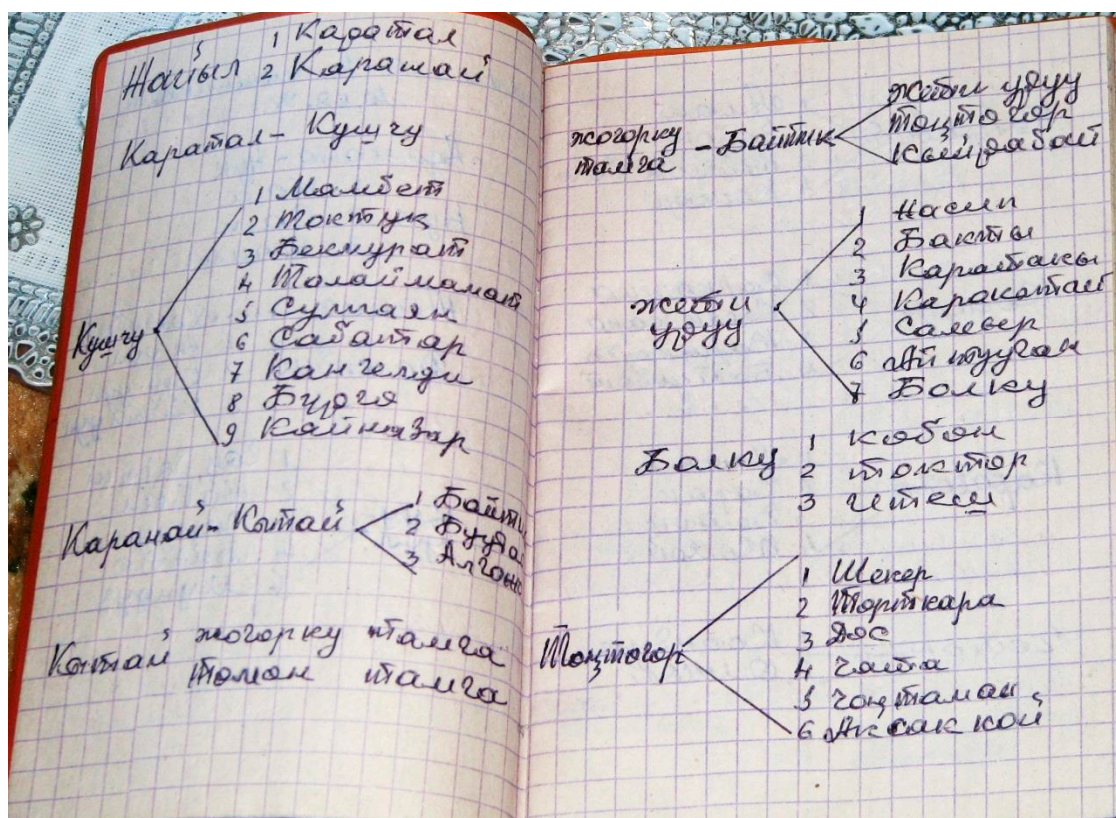 Жайыл 1 Каратал
2 Карамай
Каратал - Кушчу
1 Мамбет
2 Токтук
3 Бекмурат
4 Талаймамат
5 Сулпаян
6 Сабатар
Кушчу
7 Кангелди
8 Бүргө
9 Койназар
Каранай - Кытай
1 Байти
2 Буудай
3 Алгоңо
Кытай жогорку тамга
томон тамга
жогорку тамга - Байтик
Жети уруу
Тоңтогор
Кылдабай
Жети уруу
1 Насип
2 Бакты
3 Каратакы
4 Каракотай
5 Самсер
6 Айтууган
7 Болку
Болку 1 Кобон
2 Токтор
3 Итеш
Тоңтогор
1 Шекер
2 Торткара
3 Дос
4 Чата
5 Чоңтаман
6 Аксак кой